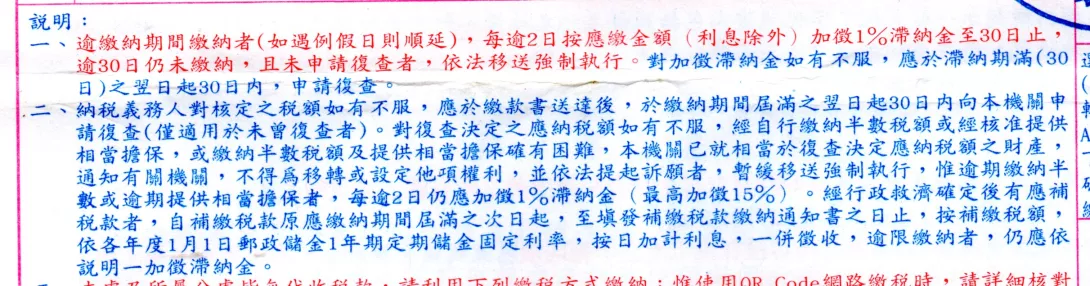 說明：
一、逾繳納期間繳納者(如遇例假日則順延)，每逾2日按應繳金額（利息除外）加徵1%滯納金至30日止，
逾30日仍未繳納，且未申請復查者，依法移送強制執行。對加徵滯納金如有不服，應於滯納期滿(30
日)之翌日起30日內，申請復查。
二、納稅義務人對核定之稅額如有不服，應於繳款書送達後，於繳納期間屆滿之翌日起30日內向本機關申
請復查(僅適用於未曾復查者)。對復查決定之應納稅額如有不服，經自行繳納半數稅額或經核准提供
相當擔保，或繳納半數稅額及提供相當擔保確有困難，本機關已就相當於復查決定應納稅額之財產，
通知有關機關，不得為移轉或設定他項權利，並依法提起訴願者，暫緩移送強制執行，惟逾期繳納半
數或逾期提供相當擔保者，每逾2日仍應加徵1%滯納金（最高加徵15%）。經行政救濟確定後有應補
稅款者，自補繳稅款原應繳納期間屆滿之次日起，至填發補繳稅款繳納通知書之日止，按補繳稅額，
依各年度1月1日郵政儲金1年期定期儲金固定利率，按日加計利息，一併徵收，逾限繳納者，仍應依
說明一加徵滯納金。
代收稅款，請利用下列繳稅方式繳納；惟使用QR Code網路繳稅時，請詳細核對